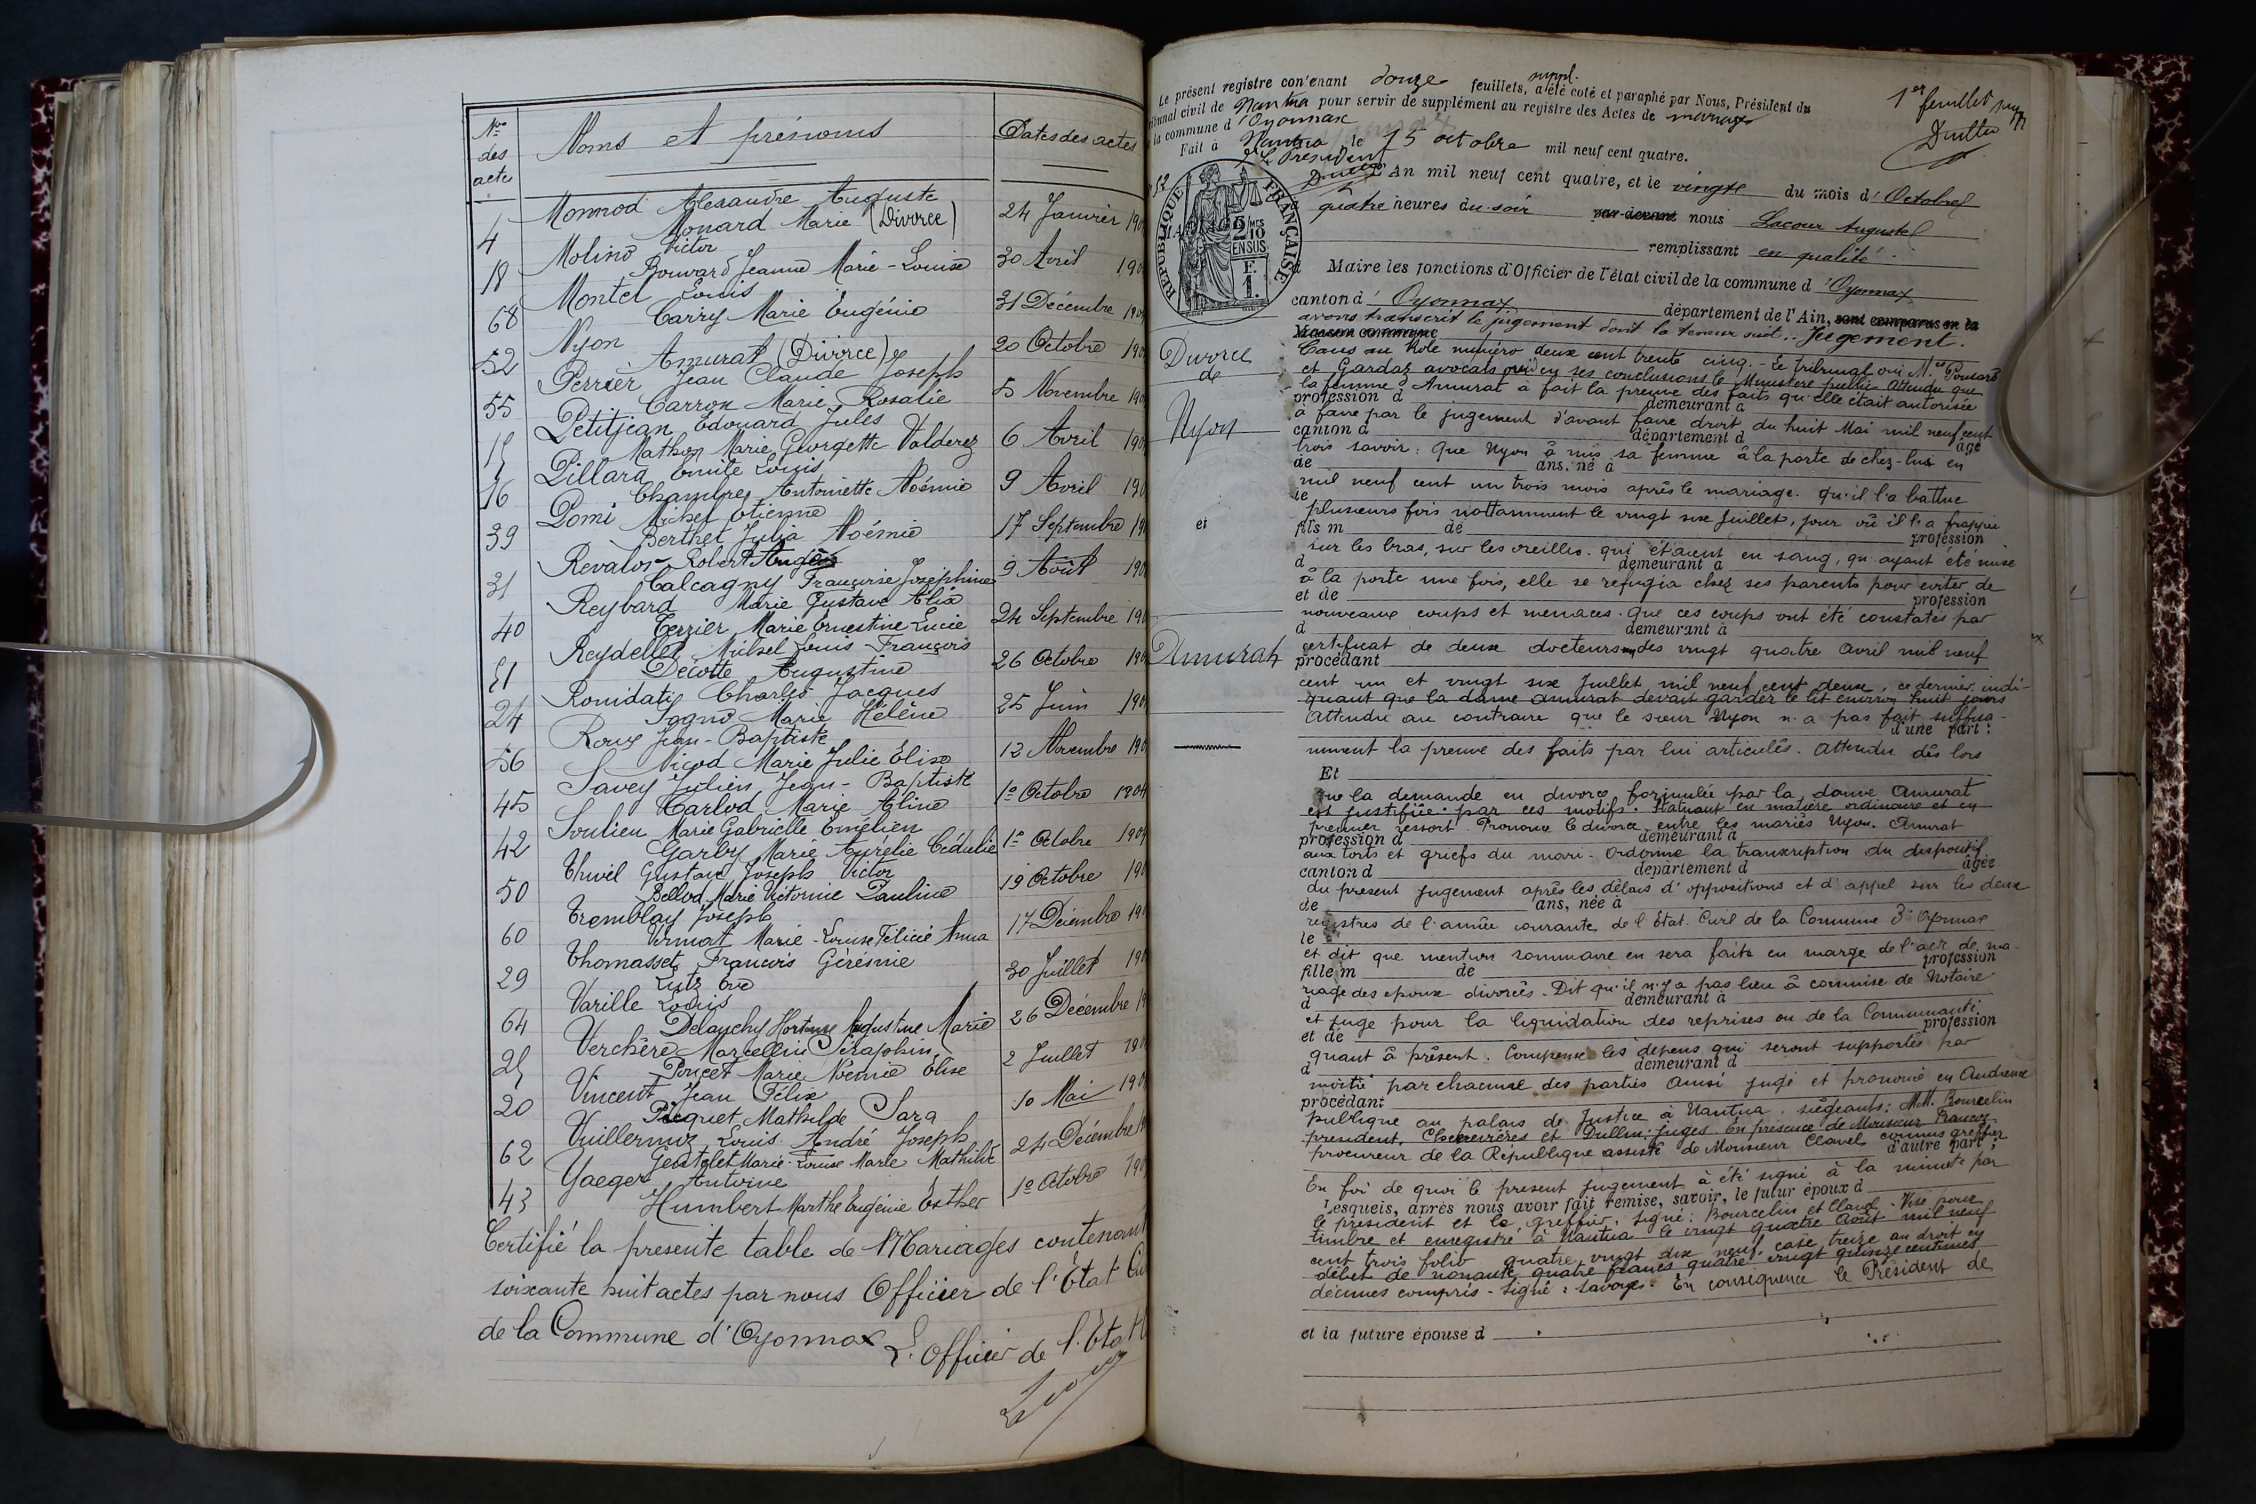 Nos des actes
Noms et prénoms
Dates des actes
4 Monnod Alexandre Auguste
Monard Marie (Divorce) 24 Janvier 190
18 Molino Victor
Bouvard Jeanne Marie-Louise 30 Avril 190
68 Montel Louis
Carry Marie Eugénie 31 Décembre 190
52 Nyon
Amurat (Divorce) 20 Octobre 190
55 Perrier Jean Claude Joseph
Carron Marie Rosalie 5 Novembre 190
15 Petitjean Edouard Jules
Mathon Marie Georgette Valderez 6 Avril 190
16 Pillard Emile Louis
Chambre Antoinette Noémie 9 Avril 190
39 Pomi Michel Etienne
Berthet Julia Noémie 17 Septembre 190
31 Revalor Robert
Calcagny Françoise Joséphine 9 Août 190
40 Reybard Marie Gustave Alix
Terrier Marie Ernestine Lucie 24 Septembre 190
51 Reydellet Michel Louis François
Décotte Augustine 26 Octobre 190
24 Romidati Charles Jacques
Sogno Marie Hélène 25 Juin 190
56 Roux Jean-Baptiste
Nicod Marie Julie Elise 12 Novembre 190
45 Savey Julien Jean-Baptiste
Carlod Marie Aline 1º Octobre 1904
42 Soulieu Marie Gabrielle Emélien
Garby Marie Aurélie Cédulie 1º Octobre 1904
50 Thivel Gustave Joseph Victor
Bellod Marie Victorine Pauline 19 Octobre 190
60 Tremblay Joseph
Vermat Marie-Louise Félicie Anna 17 Décembre 190
29 Thomasset François Gérésime
Lutz Eve 30 Juillet 190
64 Varille Louis
Delauchy Hortense Augustine Marie 26 Décembre 19
25 Verchère Marcellin Séraphin
Poncet Marie Noémie Elise 2 Juillet 190
20 Vincent Jean Félix
Picquet Mathilde Sara 10 Mai 190
62 Vuillermoz Louis André Joseph
Gentelet Marie-Louise Marie Mathilde 24 Décembre 19
43 Yaeger Antoine
Humbert Marthe Eugénie Esther 1º Octobre 190
Certifié la presente table de Mariages contenant
soixante huit actes par nous Officier de l'État Ci
de la Commune d'Oyonnax
L'officier de l'État
Le présent registre con'enant douze feuillets, suppl. a été coté et paraphé par Nous, Président du
ribunal civil de Nantua pour servir de supplément au registre des Actes de mariage
la commune d'Oyonnax
Fait à Nantua, le 15 octobre mil neuf cent quatre.
Le Président
1er feuillet
52
RÉPUBLIQUE FRANÇAISE
2/10 EN SUS
F. 1.
L'An mil neuf cent quatre, et le vingt du mois d'Octobre
à quatre heures du soir par-devant nous Lacour Auguste
remplissant en qualité
d Maire les fonctions d'Officier de l'état civil de la commune d'Oyonnax
canton d'Oyonnax département de l'Ain, sont comparus en la
Maison commune
avons transcrit le jugement dont la teneur suit: Jugement.
Divorce
de
Nyon
et
Amurat
Cause au Rôle numéro deux cent trente cinq. - Le tribunal oui M.es Ponsard
et Gardaz avocats oui en ses conclusions le Ministère public Attendu que
la femme Amurat à fait la preuve des faits qu'elle était autorisée
profession d demeurant à
à faire par le jugement d'avant faire droit du huit Mai mil neuf cent
canton d département d âgé
trois savoir: que Nyon à mis sa femme à la porte de chez-lui en
de ans, né à
mil neuf cent un trois mois après le mariage. qu'il l'a battue
le
plusieurs fois nottamment le vingt six Juillet, jour où il l'a frappée
fils m de profession
sur les bras, sur les oreilles. qui étaient en sang, qu'ayant été mise
d demeurant à
à la porte une fois, elle se refugia chez ses parents pour éviter de
et de profession
nouveaux coups et menaces. Que ces coups ont été constatés par
d demeurant à
certificat de deux docteurs des vingt quatre avril mil neuf
procédant
cent un et vingt six Juillet mil neuf cent deux, ce dernier indi-
quant que la dame Amurat devait garder le lit environ huit jours
Attendu au contraire que le sieur Nyon n'a pas fait suffisa-
d'une part:
mment la preuve des faits par lui articulés. Attendu dès lors
Et
que la demande en divorce formulée par la dame Amurat
est justifiée par ces motifs. Statuant en matière ordinaire et en
premier ressort. Prononce le divorce entre les mariés Nyon. Amurat
profession d demeurant à
aux torts et griefs du mari. Ordonne la transcription du dispositif
canton d département d âgée
du present jugement après les délais d'oppositions et d'appel sur les deux
de ans, née à
registres de l'année courante de l'Etat. Civil de la Commune d'Oyonnax
le
et dit que mention sommaire en sera faite en marge de l'acte de ma-
fille m de profession
riage des epoux divorcés. Dit qu'il n'y a pas lieu à commise de Notaire
d demeurant à
et juge pour la liquidation des reprises ou de la Communauté
et de profession
quant à présent. Compense les dépens qui seront supportés par
d demeurant d
moitié par chacune des parties ainsi jugé et prononcé en Audience
procédant
publique au palais de Justice à Nantua. siégeants: M.M. Bourcelin
président, Chevrières et Dullin, juges. En présence de Monsieur Rancoz
procureur de la République assisté de Monsieur Clavel commis greffier
d'autre part;
En foi de quoi le present jugement à été signé à la minute par
Lesquels, après nous avoir fait remise, savoir, le futur époux d
le président et le greffier. Signé: Bourcelin et Clavel. Visé pour
timbre et enregistré à Nantua le vingt quatre Août mil neuf
cent trois folio quatre vingt dix neuf. case treize au droit en
débet de nonante quatre francs quatre vingt quinze centimes
décimes compris. Signé: Savoye. En conséquence le Président de
et la future épouse d